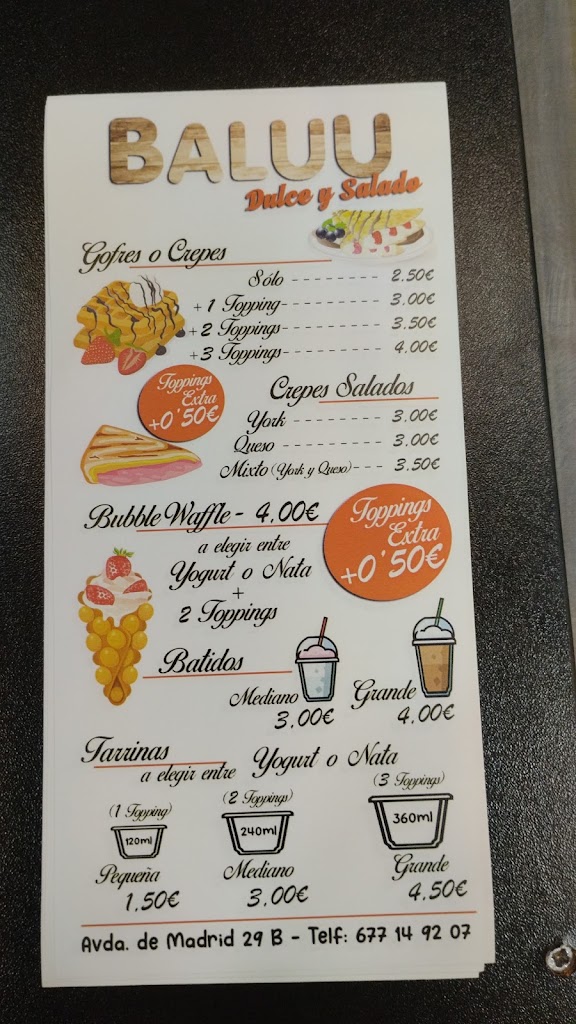 BALUU
Dulce y Salado
Gofres o Crepes
Sólo -------- 2.50€
+ 1 Topping--------- 3.00€
+ 2 Toppings--------- 3.50€
+3 Toppings--------- 4.00€
Toppings
Extra
+0'50€
Crepes Salados
York --------- 3.00€
Queso --------- 3.00€
Mixto (York y Queso)--- 3.50€
Bubble Waffle - 4,00€
a elegir entre
Yogurt o Nata
+
2 Toppings
Toppings
Extra
+0'50€
Batidos
Mediano
3,00€
Grande
4,00€
Tarrinas
a elegir entre Yogurt o Nata
(1 Topping)
120ml
Pequeña
1,50€
(2 Toppings)
240ml
Mediano
3,00€
(3 Toppings)
360ml
Grande
4,50€
Avda. de Madrid 29 B - Telf: 677 14 92 07